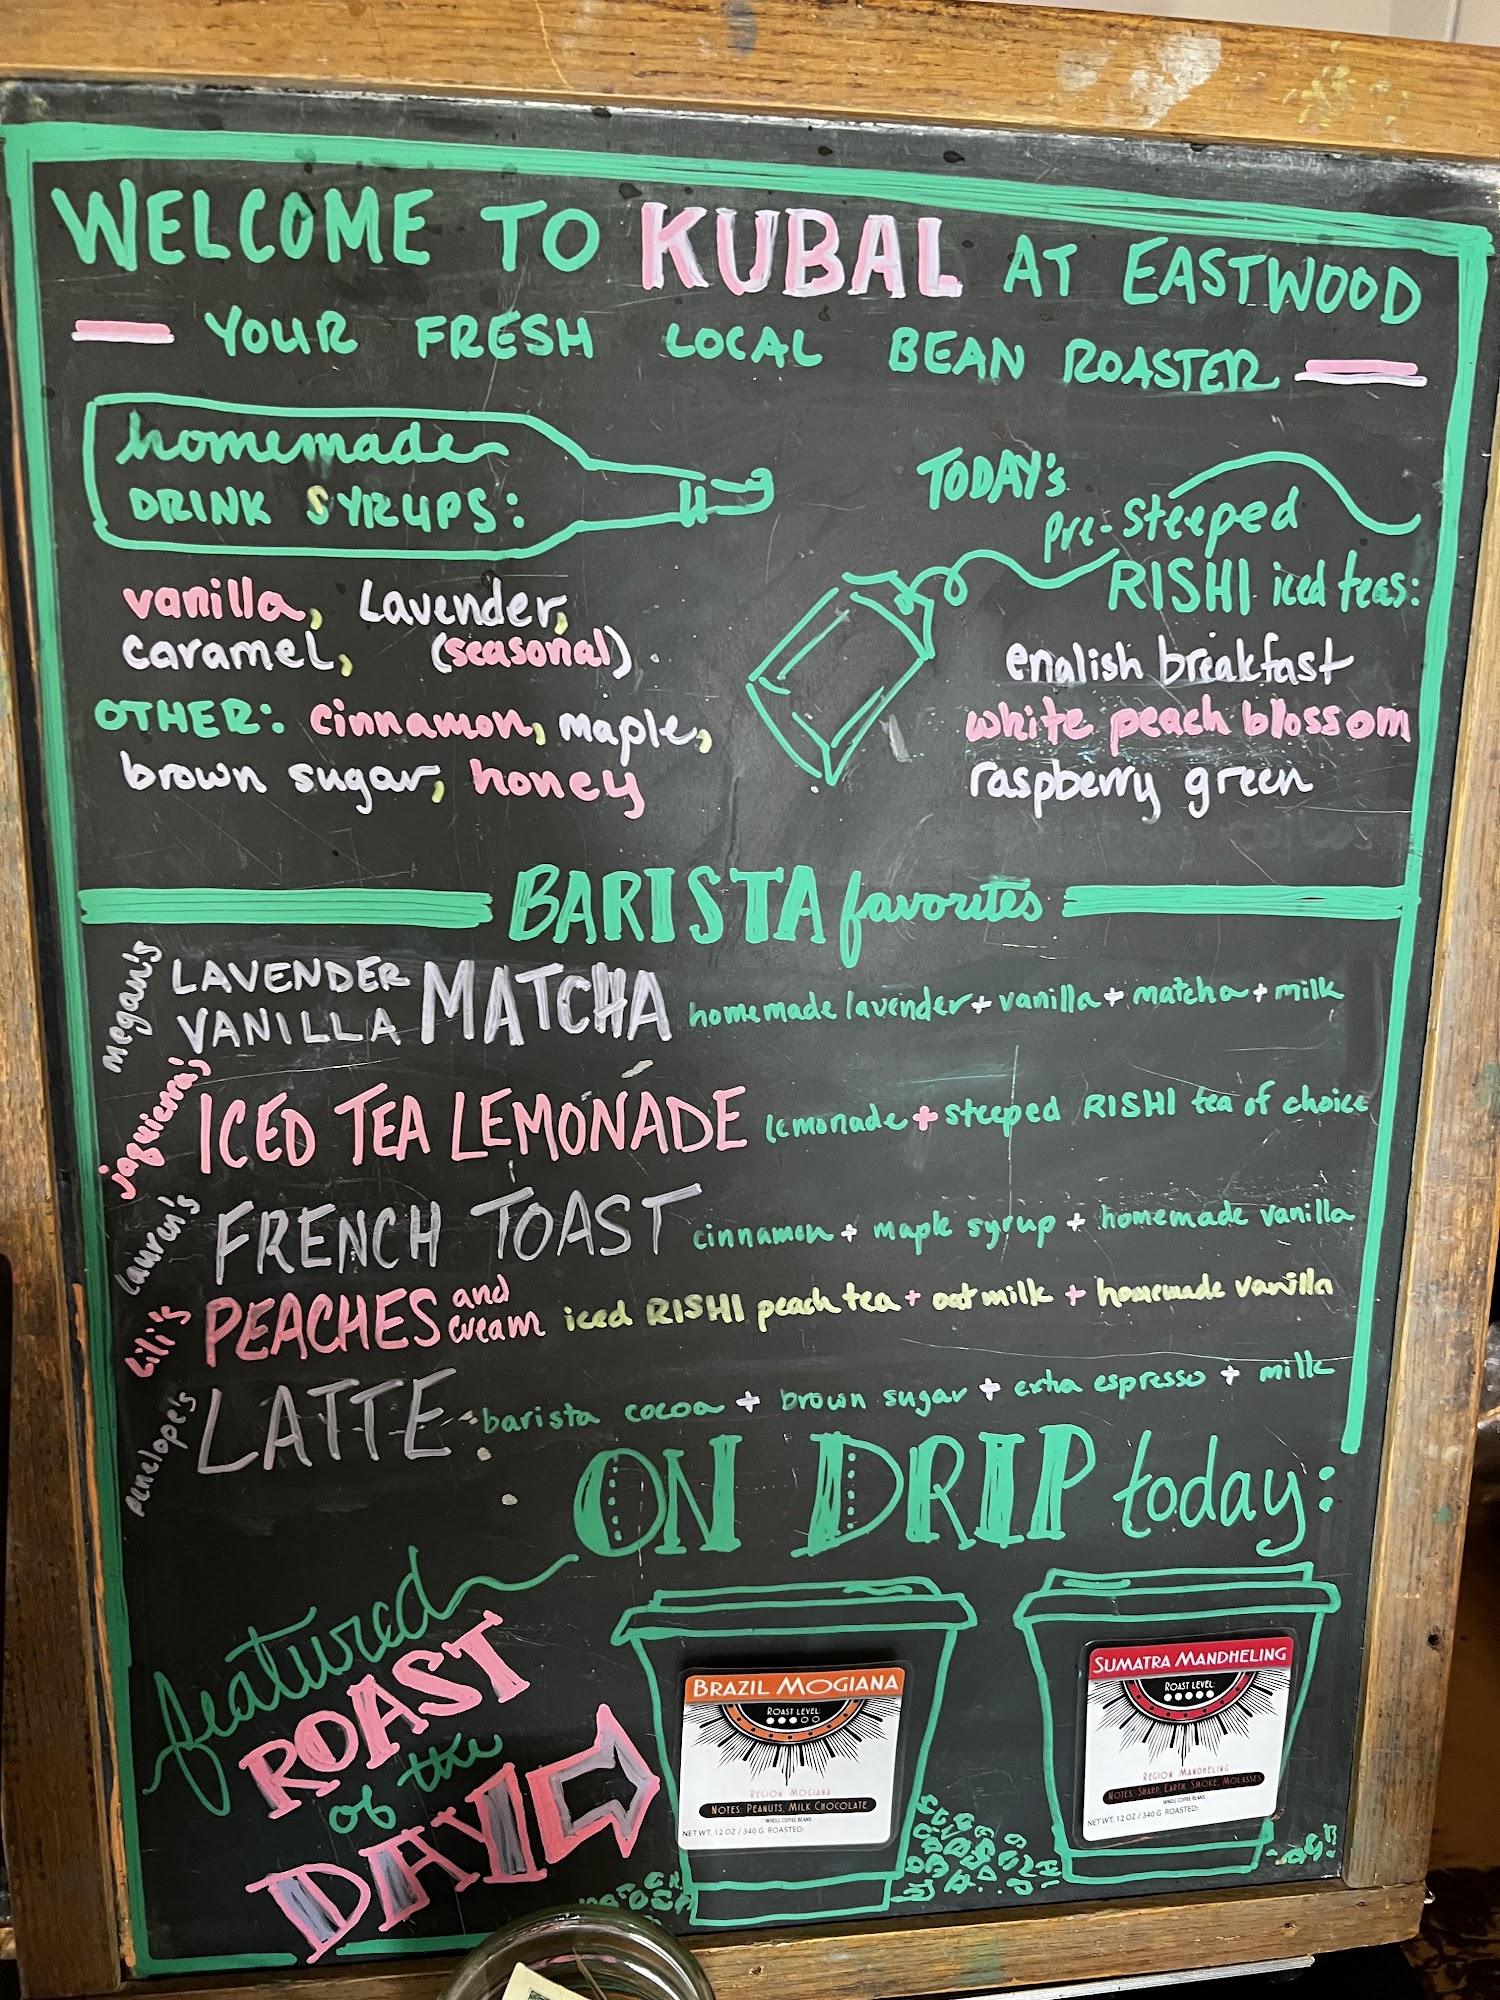 WELCOME TO KUBAL AT EASTWOOD
YOUR FRESH LOCAL BEAN ROASTER
homemade
DRINK SYRUPS:
vanilla, Lavender,
caramel, (seasonal)
OTHER: cinnamon, maple,
brown sugar, honey
TODAY's
pre-steeped
RISHI iced teas:
english breakfast
white peach blossom
raspberry green
BARISTA favorites
megan's
LAVENDER
VANILLA MATCHA
homemade lavender + vanilla + matcha + milk
jaquienna's
ICED TEA LEMONADE
lemonade + steeped RISHI tea of choice
lauren's
FRENCH TOAST
cinnamon + maple syrup + homemade vanilla
Lili's
PEACHES and cream
iced RISHI peach tea + oat milk + homemade vanilla
penelope's
LATTE
barista cocoa + brown sugar + extra espresso + milk
ON DRIP today:
featured
ROAST
of the
DAY
BRAZIL MOGIANA
ROAST LEVEL:
REGION MOGIANA
NOTES: PEANUTS, MILK CHOCOLATE
WHOLE COFFEE BEANS
NET WT. 12 OZ / 340 G ROASTED:
SUMATRA MANDHELING
ROAST LEVEL:
REGION MANDHELING
NOTES: SHARP, EARTH, SMOKE, MOLASSES
WHOLE COFFEE BEANS
NET WT. 12 OZ / 340 G ROASTED: